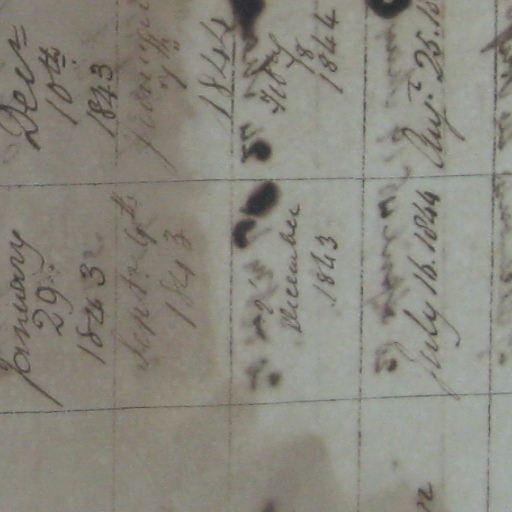 January
29
1843
Decr
10th
1843
Septr 4th
1843
7th
1844
December
1843
Feby
18
1844
July 16. 1844
Augt 25. 18